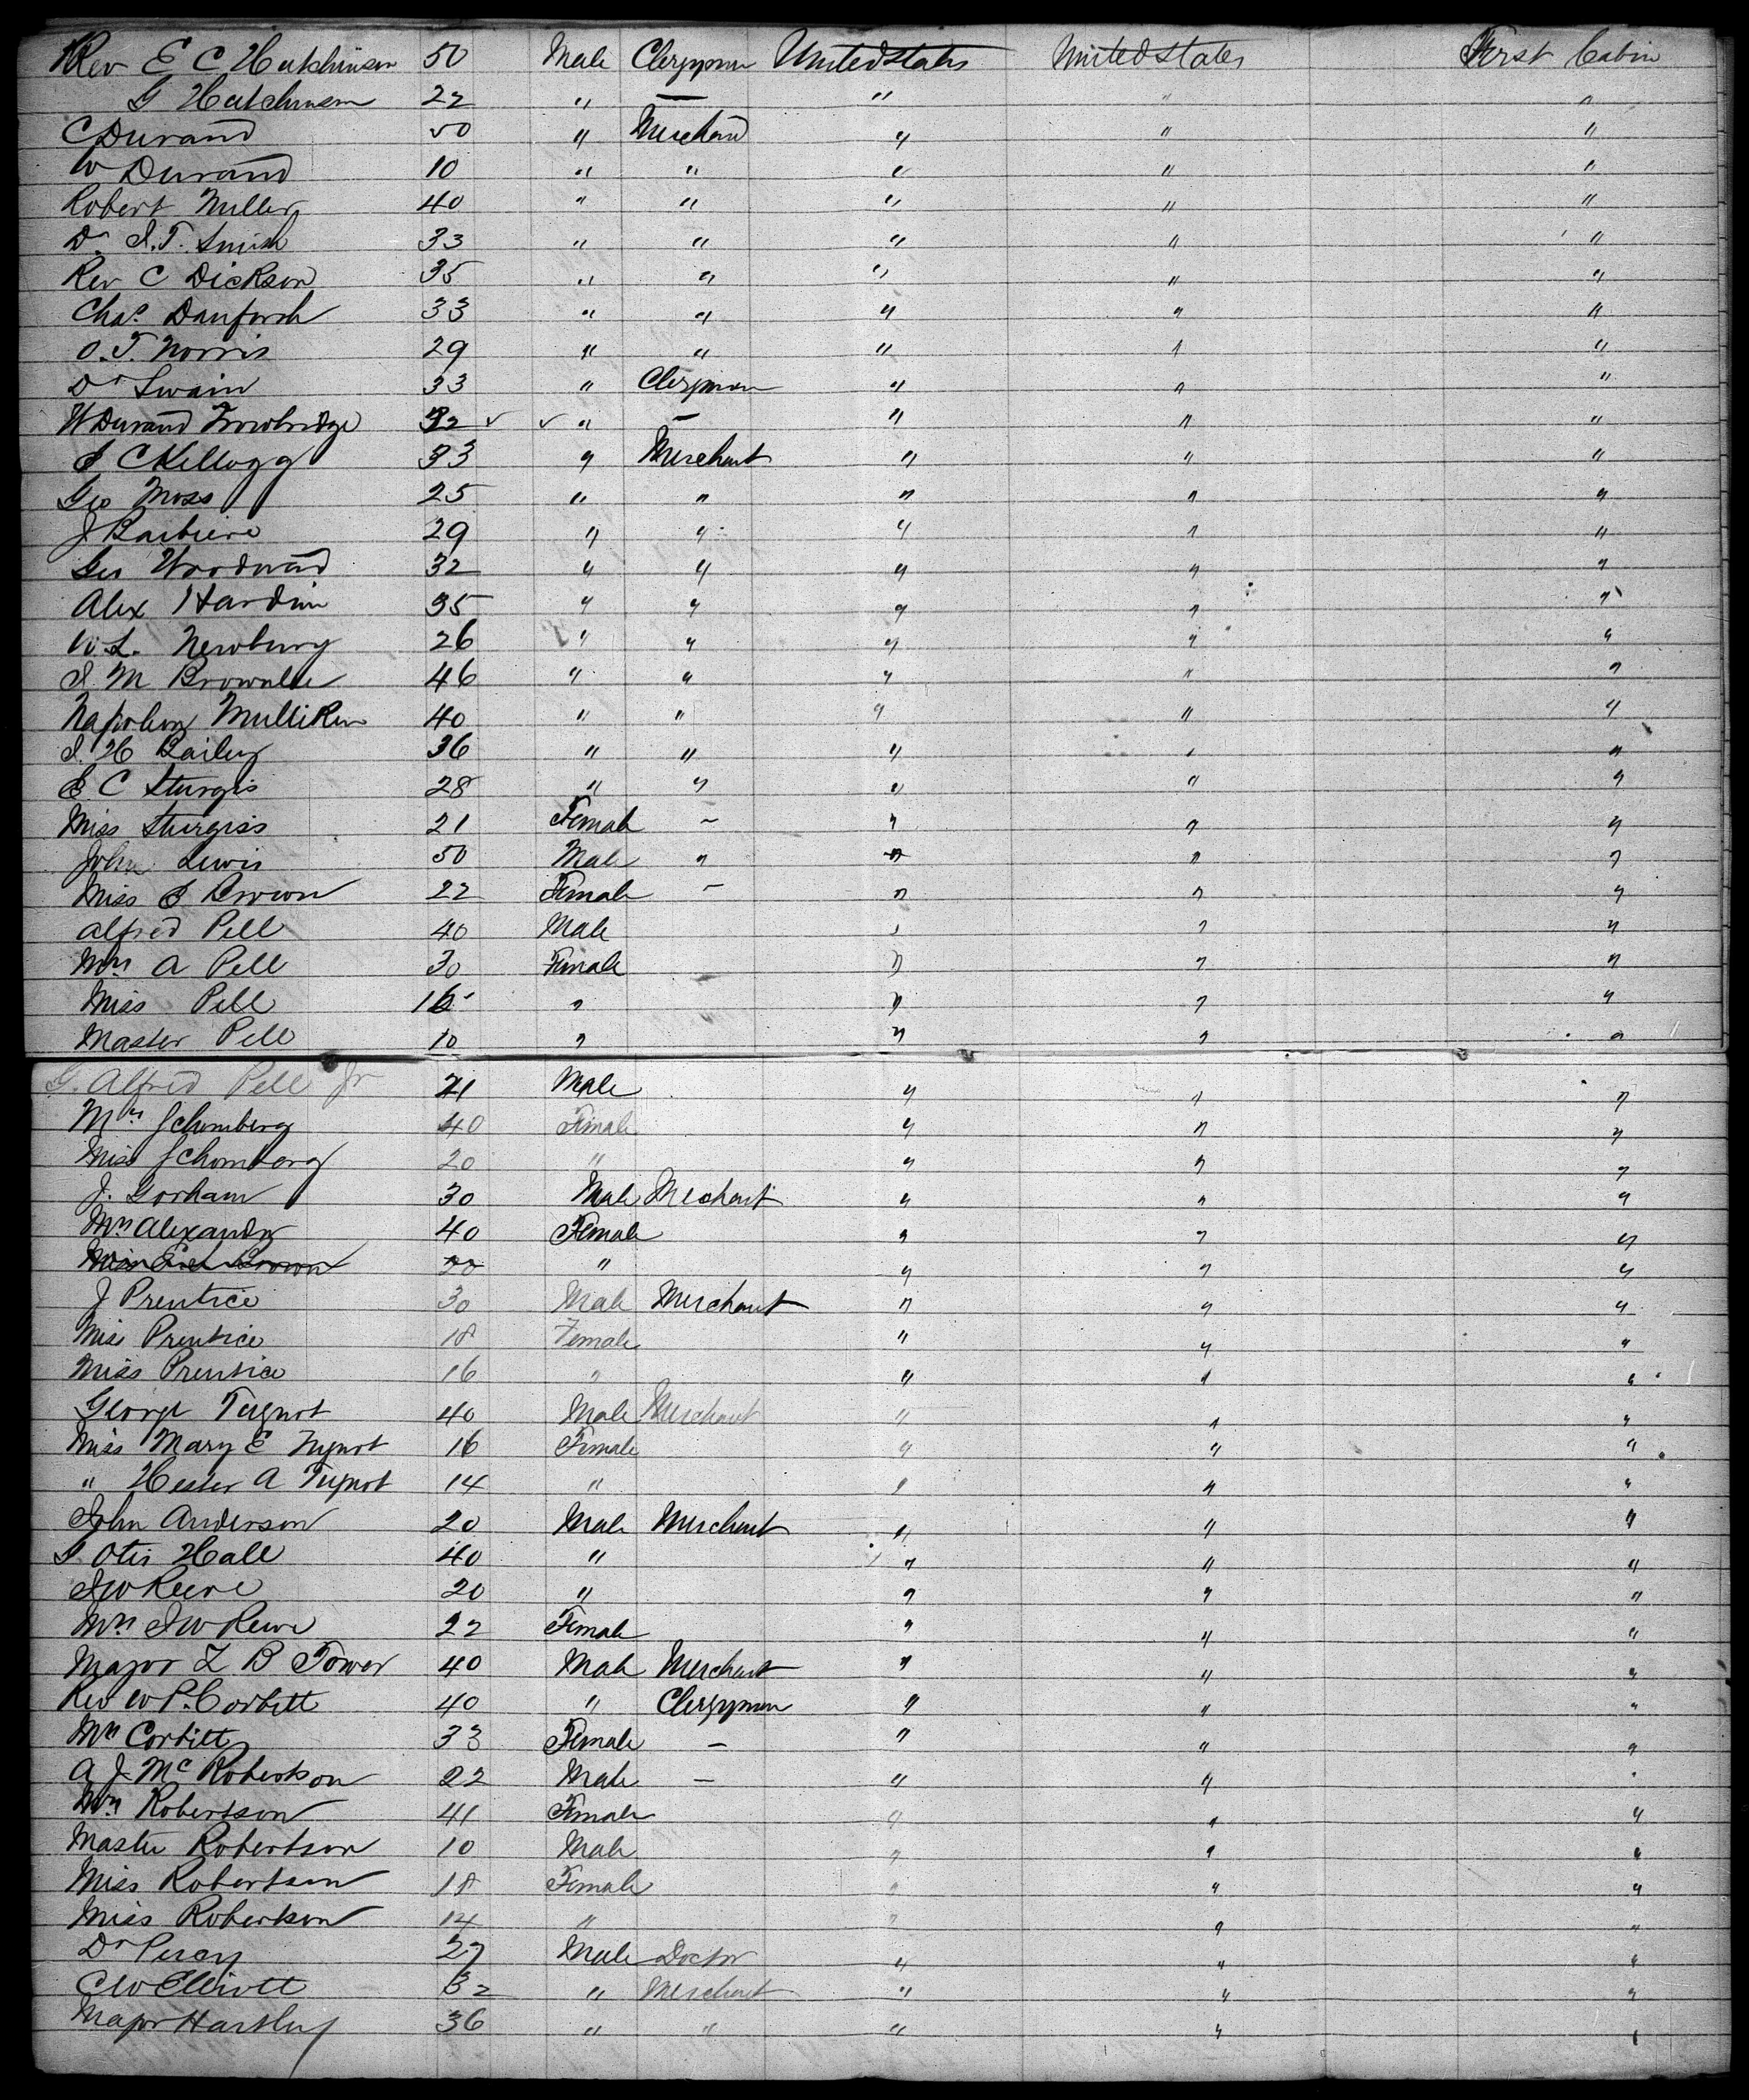 Rev E C Hutchinson 50 Male Clergyman United states United states First Cabin
G Hutchinson 22 " — " " "
C Durand 50 " Merchand " " "
W Durand 10 " " " " "
Robert Miller 40 " " " " "
Dr S. T. Smith 33 " " " " "
Rev C Dickson 35 " " " " "
Chas Danforth 33 " " " " "
O. T. Norris 29 " " " " "
Dr Swain 33 " Clergman " " "
W Durand Trowbridge 32 ✓ ✓ " — " " "
E C Kellogg 33 " Merchant " " "
Geo Moss 25 " " " " "
J Barbiere 29 " " " " "
Geo Woodward 32 " " " " "
Alex Hardin 35 " " " " "
W. L. Newburry 26 " " " " "
S M Brownlee 46 " " " " "
Napoleon Mulliken 40 " " " " "
S. H Bailey 36 " " " " "
E. C Sturgis 28 " " " " "
Miss Sturgiss 21 Female – " " "
John Lewis 50 Male " " " "
Miss E Brown 22 Female – " " "
Alfred Pell 40 Male " " "
Mrs A Pell 30 Female " " "
Miss Pell 16 " " " "
Master Pell 10 " " " "
G. Alfred Pell Jr 21 Male " " "
Mrs Schomberg 40 Female " " "
Miss Schomberg 20 " " " "
J. Gorham 30 Male Mechant " " "
Mrs Alexander 40 Female " " "
Miss Brown 20 " " " "
J Prentice 30 Male Merchant " " "
Miss Prentice 18 Female " " "
Miss Prentice 16 " " " "
George Tugnot 40 Male Merchant " " "
Miss Mary E Tugnot 16 Female " " "
" Hester A Tugnot 14 " " " "
John Anderson 20 Male Merchant " " "
G. Otis Hall 40 " " " "
S W Reeve 20 " " " "
Mrs S W Reeve 22 Female " " "
Major Z B Tower 40 Male Merchant " " "
Rev W P. Corbitt 40 " Clergyman " " "
Mrs Corbitt 33 Female — " " "
A J Mc Robertson 22 Male — " " "
Mrs Robertson 41 Female " " "
Master Robertson 10 Male " " "
Miss Robertson 18 Female " " "
Miss Robertson 14 " " " "
Dr Percy 27 Male Doctor " " "
C W Elliott 32 " Merchant " " "
Major Hartley 36 " " " " "